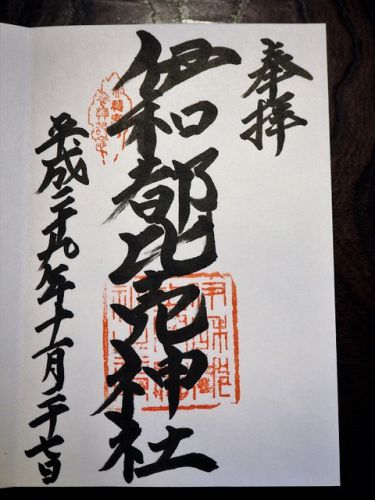 奉拝
伊和都比売神社
平成二十九年十一月二十七日